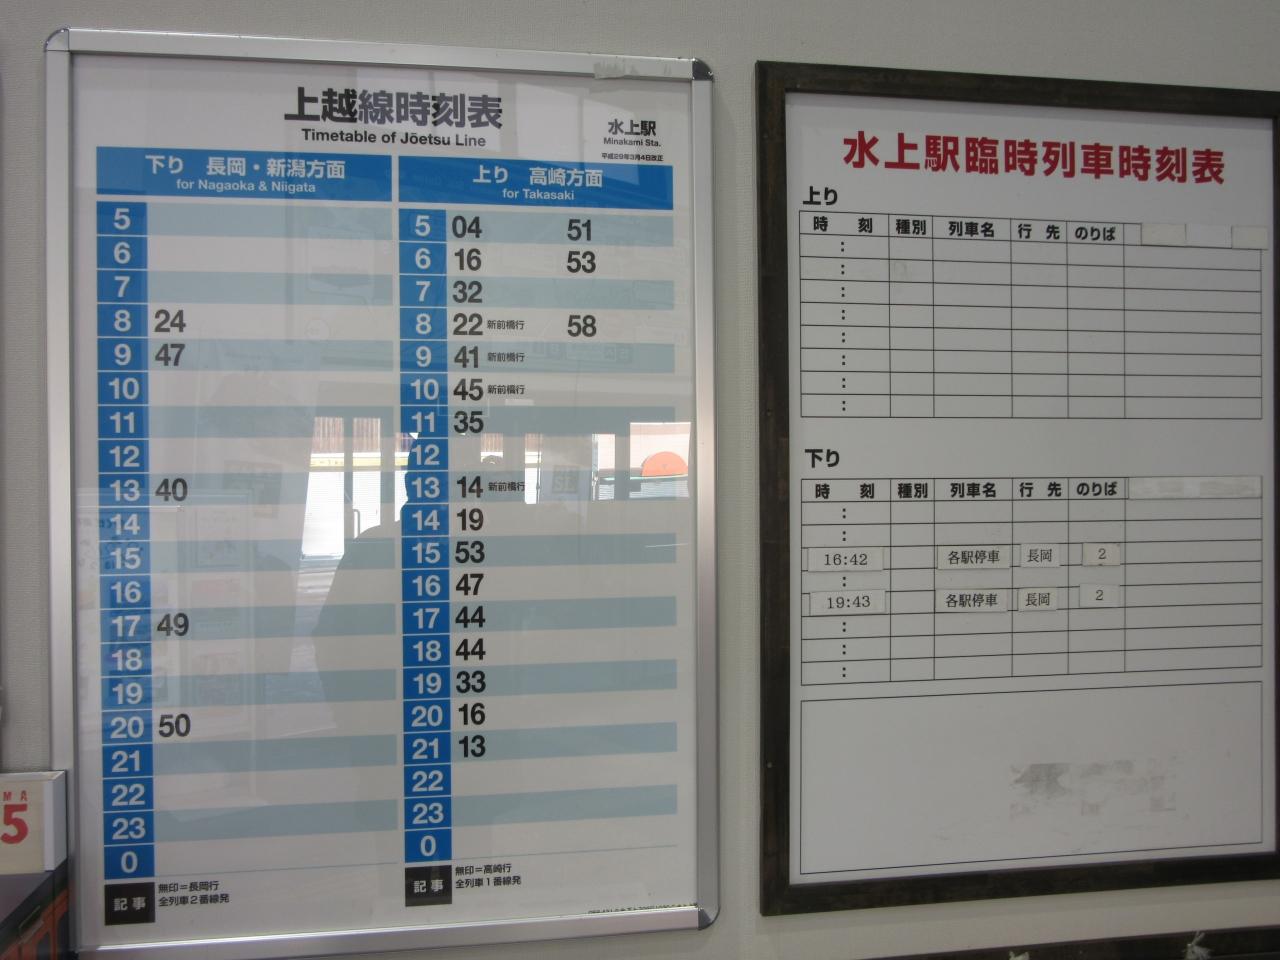 上越線時刻表
Timetable of Jōetsu Line
水上駅
Minakami Sta.
平成29年3月4日改正
下り 長岡・新潟方面
for Nagaoka & Niigata
5
6
7
8 24
9 47
10
11
12
13 40
14
15
16
17 49
18
19
20 50
21
22
23
0
記事
無印=長岡行
全列車2番線発
上り 高崎方面
for Takasaki
5 04 51
6 16 53
7 32
8 22 新前橋行 58
9 41 新前橋行
10 45 新前橋行
11 35
12
13 14 新前橋行
14 19
15 53
16 47
17 44
18 44
19 33
20 16
21 13
22
23
0
記事
無印=高崎行
全列車1番線発
水上駅臨時列車時刻表
上り
時 刻 種別 列車名 行先 のりば
:
:
:
:
:
:
:
:
下り
時 刻 種別 列車名 行先 のりば
:
:
16:42 各駅停車 長岡 2
:
19:43 各駅停車 長岡 2
:
:
:
MA
5